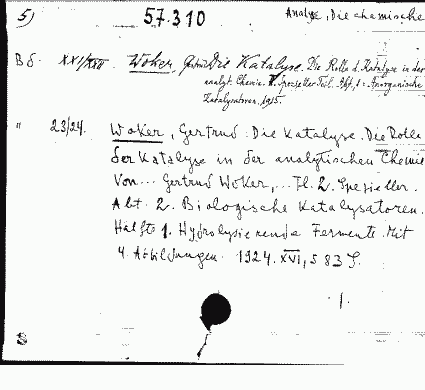 5) 57.310 Analyse, Die chemische
Bd. XXI/XXII. Woker, Gertrud: Die Katalyse. Die Rolle d. Katalyse in der
analyt. Chemie. Spezieller Teil. Abt. 1: Anorganische
Katalysatoren. 1915.
" 23/24. Woker, Gertrud: Die Katalyse. Die Rolle
der Katalyse in der analytischen Chemie
Von... Gertrud Woker,... Tl. 2. Spezieller.
Abt. 2. Biologische Katalysatoren.
Hälfte 1. Hydrolysierende Fermente. Mit
4 Abbildungen. 1924. XVI, 583 S.